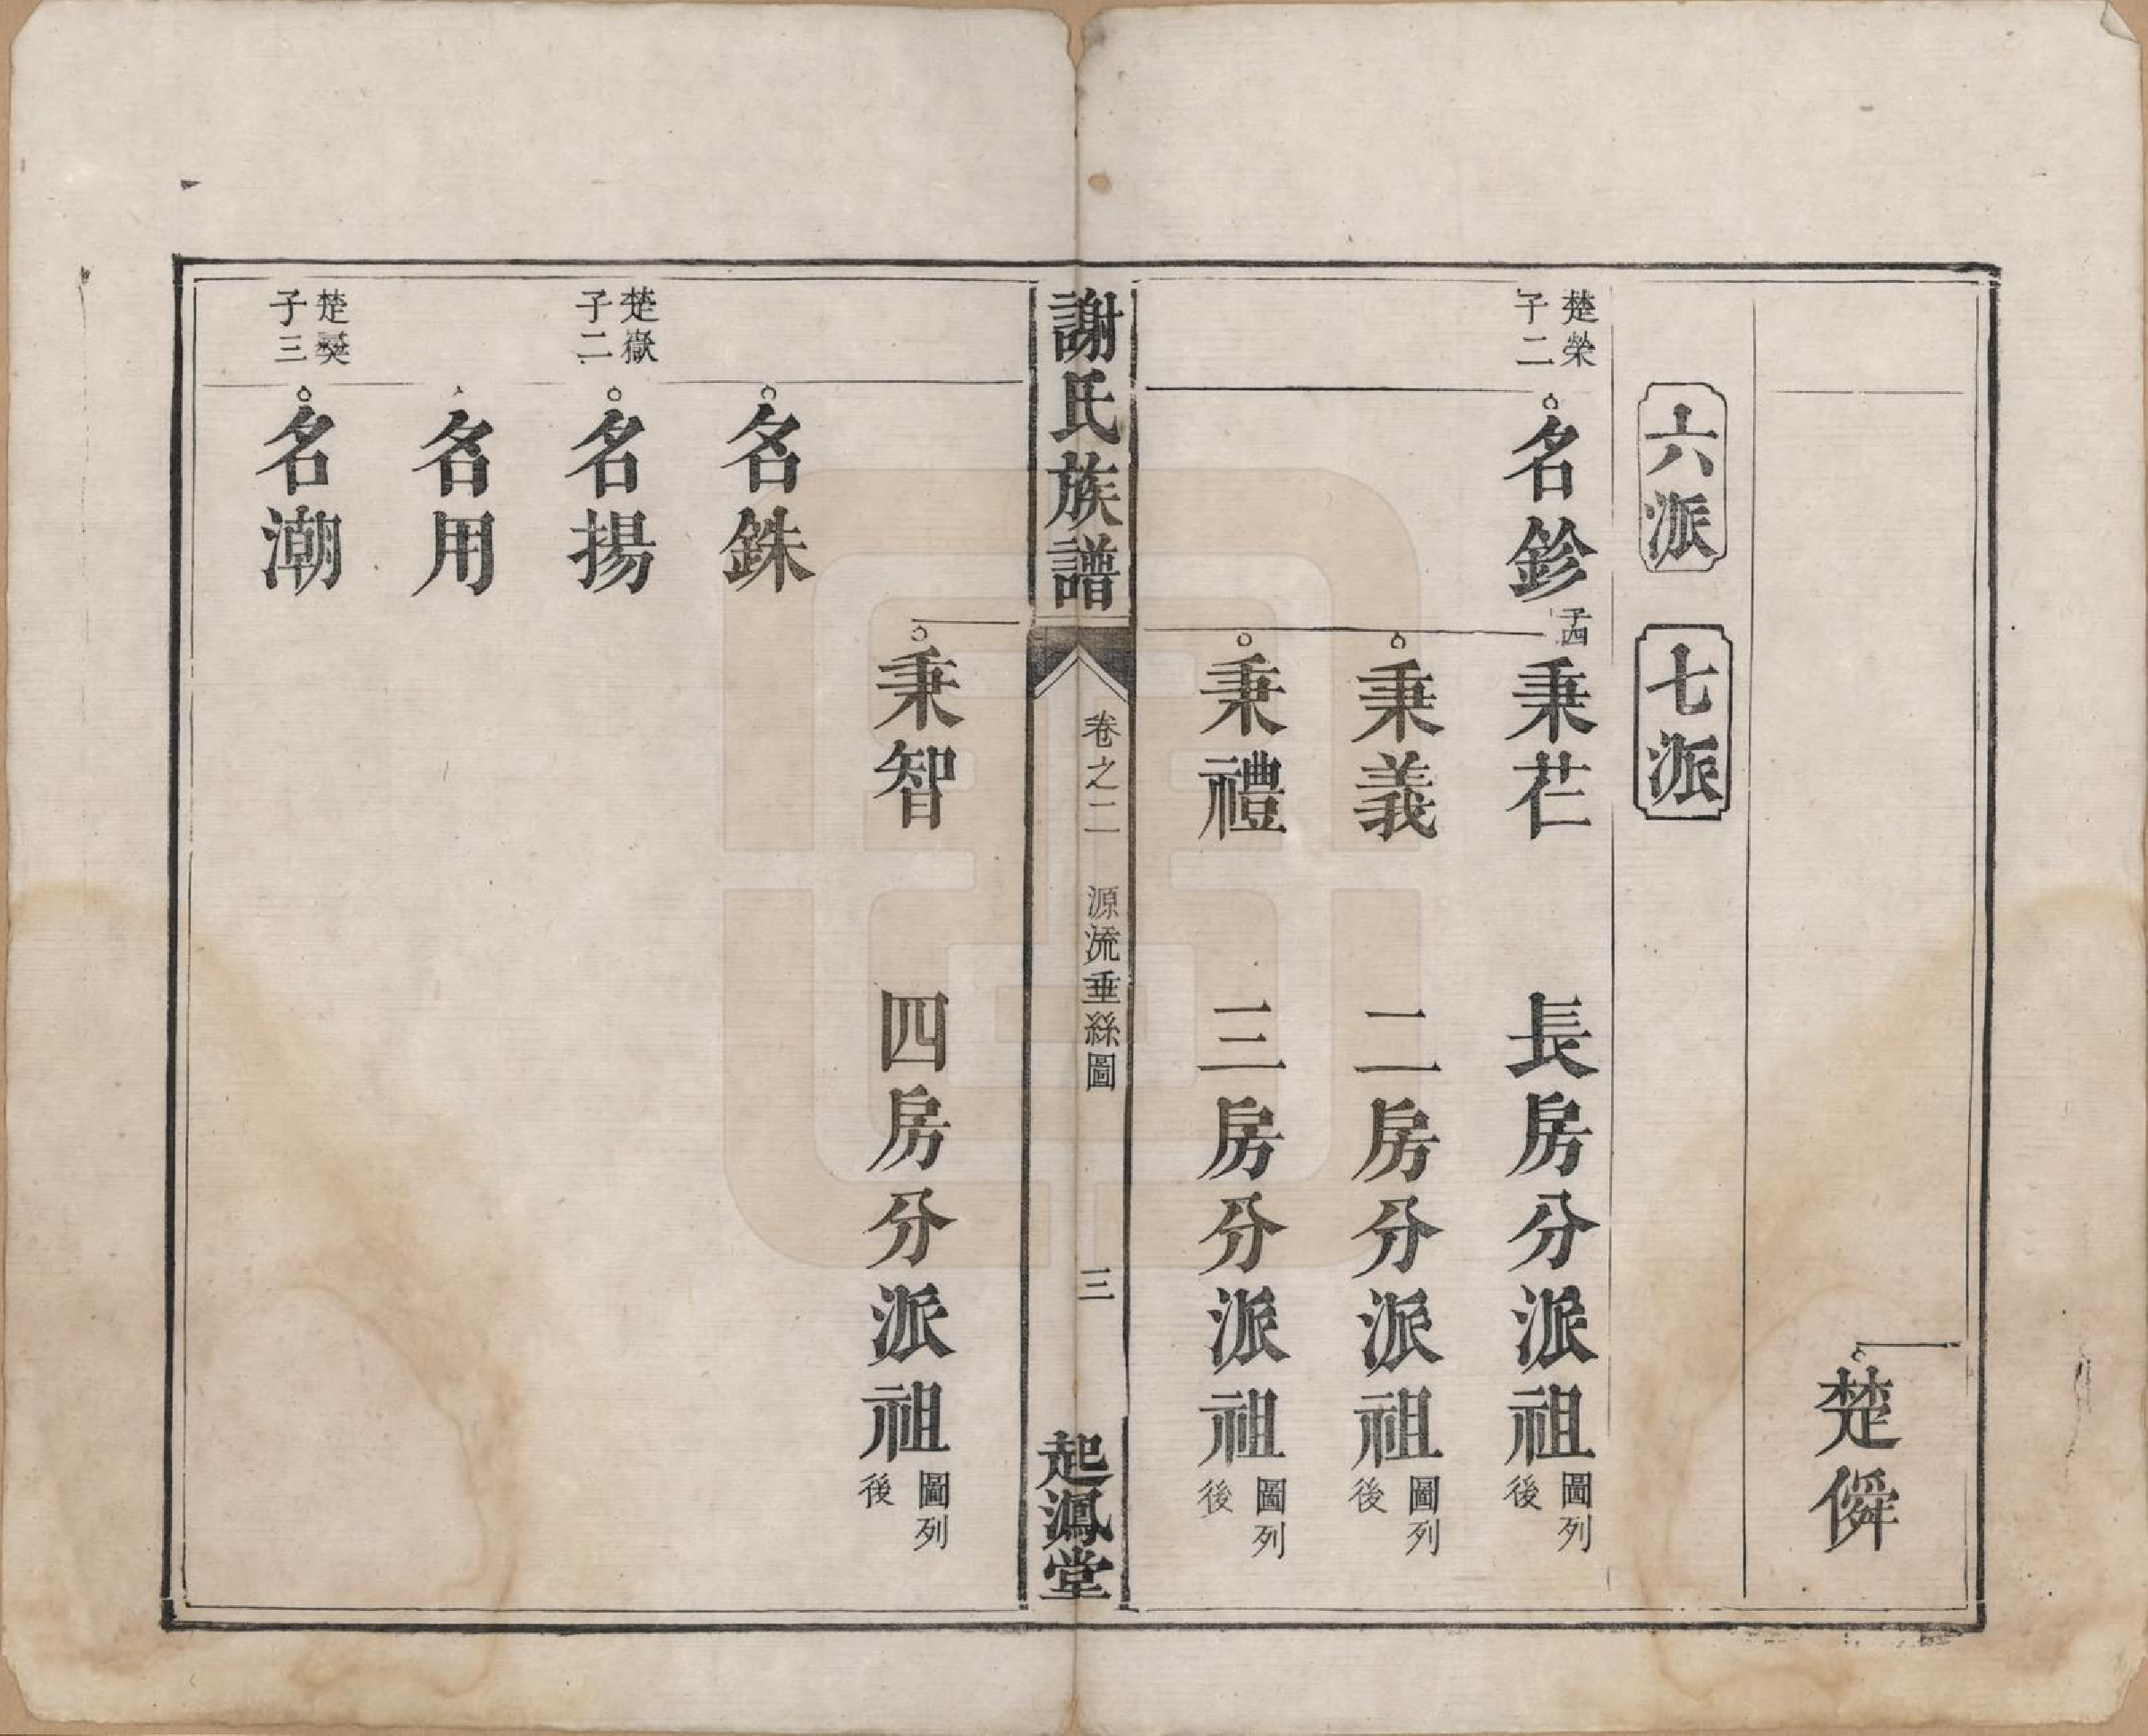 楚僢
六派
七派
楚榮
子二
名鉁
子四
秉芢
長房分派祖
圖列
後
秉義
二房分派祖
圖列
後
秉禮
三房分派祖
圖列
後
謝氏族譜
卷之二
源流垂絲圖
三
起鳳堂
秉智
四房分派祖
圖列
後
名銖
楚嶽
子二
名揚
名用
楚
子三
名潮